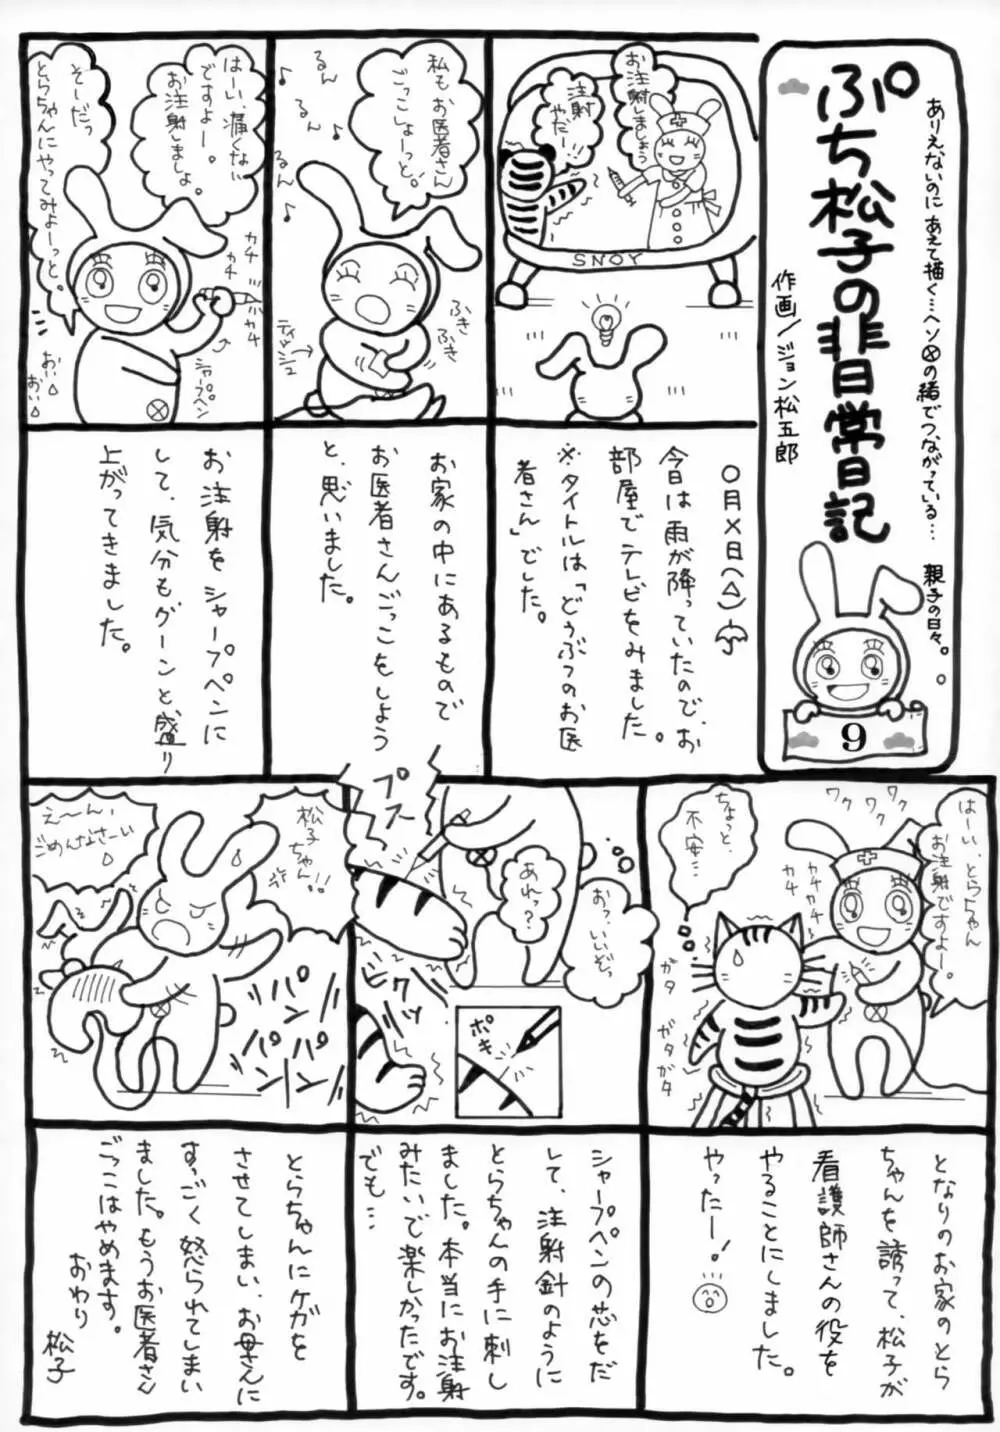 ありえないのに あえて描く…ヘソの緒でつながっている…
親子の日々。
ぷち松子の非日常日記
作画/ジョン松五郎
9
お注射しましょう
注射
やだー!!
SNOY
〇月×日(△)
今日は雨が降っていたので、お
部屋でテレビをみました。
※タイトルは「どうぶつのお医
者さん」でした。
私もお医者さん
ごっこしよーっと!
るん
るん
るん
ふき
ふき
ティッシュ
お家の中にあるもので
お医者さんごっこをしよう
と、思いました。
はーい、痛くない
ですよー。
お注射しましょ。
そーだっ
とらちゃんにやってみよーっと。
カチ
カチ
カチ
シャープペン
おいおい
お注射をシャープペンに
して、気分もグーンと盛り
上がってきました。
はーい、とらちゃん
お注射ですよー。
ワク
ワク
ワク
カチ
カチ
カチ
ちょっと、
不安…
ガタ
ガタ
ガタ
となりのお家のとら
ちゃんを誘って、松子が
看護師さんの役を
やることにしました。
やったー!
プスー
おっ、いいぞっ
あれっ?
ビクッ
ポキ
シャープペンの芯をだ
して、注射針のように
とらちゃんの手に刺し
ました。本当にお注射
みたいで楽しかったです。
でも…
松子
ちゃん!!
え〜ん、
ごめんなさーい
パン
パン
パン
パン
とらちゃんにケガを
させてしまい、お母さんに
すっごく怒られてしまい
ました。もうお医者さん
ごっこはやめます。
おわり
松子